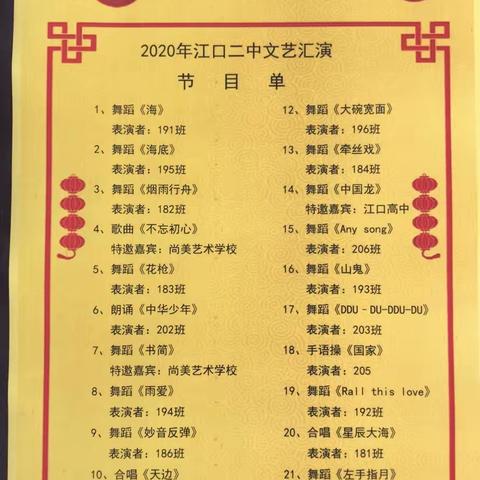 2020年江口二中文艺汇演
节 目 单
1、舞蹈《海》
表演者：191班
2、舞蹈《海底》
表演者：195班
3、舞蹈《烟雨行舟》
表演者：182班
4、歌曲《不忘初心》
特邀嘉宾：尚美艺术学校
5、舞蹈《花枪》
表演者：183班
6、朗诵《中华少年》
表演者：202班
7、舞蹈《书简》
特邀嘉宾：尚美艺术学校
8、舞蹈《雨爱》
表演者：194班
9、舞蹈《妙音反弹》
表演者：186班
10、合唱《天边》
12、舞蹈《大碗宽面》
表演者：196班
13、舞蹈《牵丝戏》
表演者：184班
14、舞蹈《中国龙》
特邀嘉宾：江口高中
15、舞蹈《Any song》
表演者：206班
16、舞蹈《山鬼》
表演者：193班
17、舞蹈《DDU–DU-DDU-DU》
表演者：203班
18、手语操《国家》
表演者：205
19、舞蹈《Rall this love》
表演者：192班
20、合唱《星辰大海》
表演者：181班
21、舞蹈《左手指月》